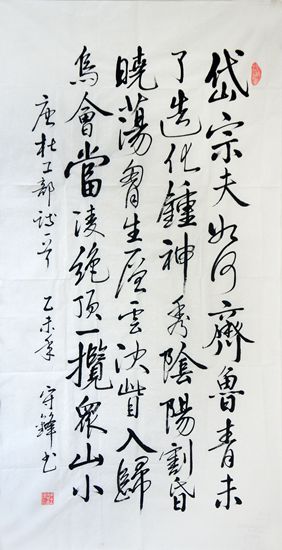 岱宗夫如何齊魯青未
了造化鍾神秀陰陽割昏
曉蕩胷生層雲決眥入歸
鳥會當凌絕頂一攬眾山小
唐杜工部詩首 乙未年 守鋒書